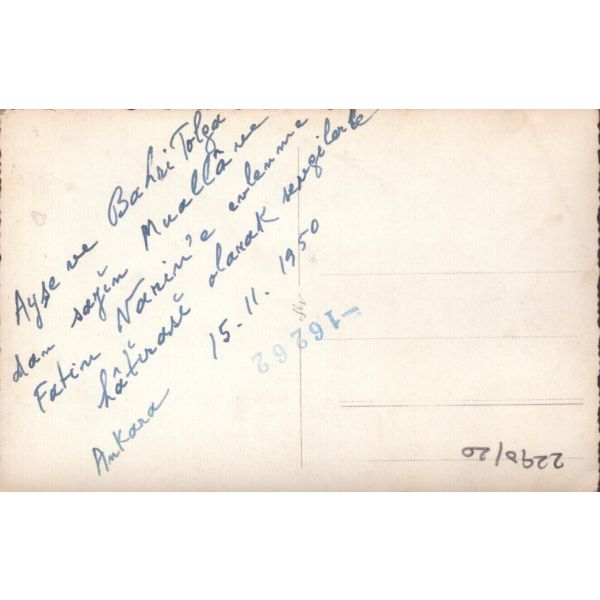 Ayşe ve Bahri Tolga
dan sayın Muallâ ve
Fatin Narin'e evlenme
hâtırası olarak sevgilerle
Ankara 15-11.1950
-16262
2290/20